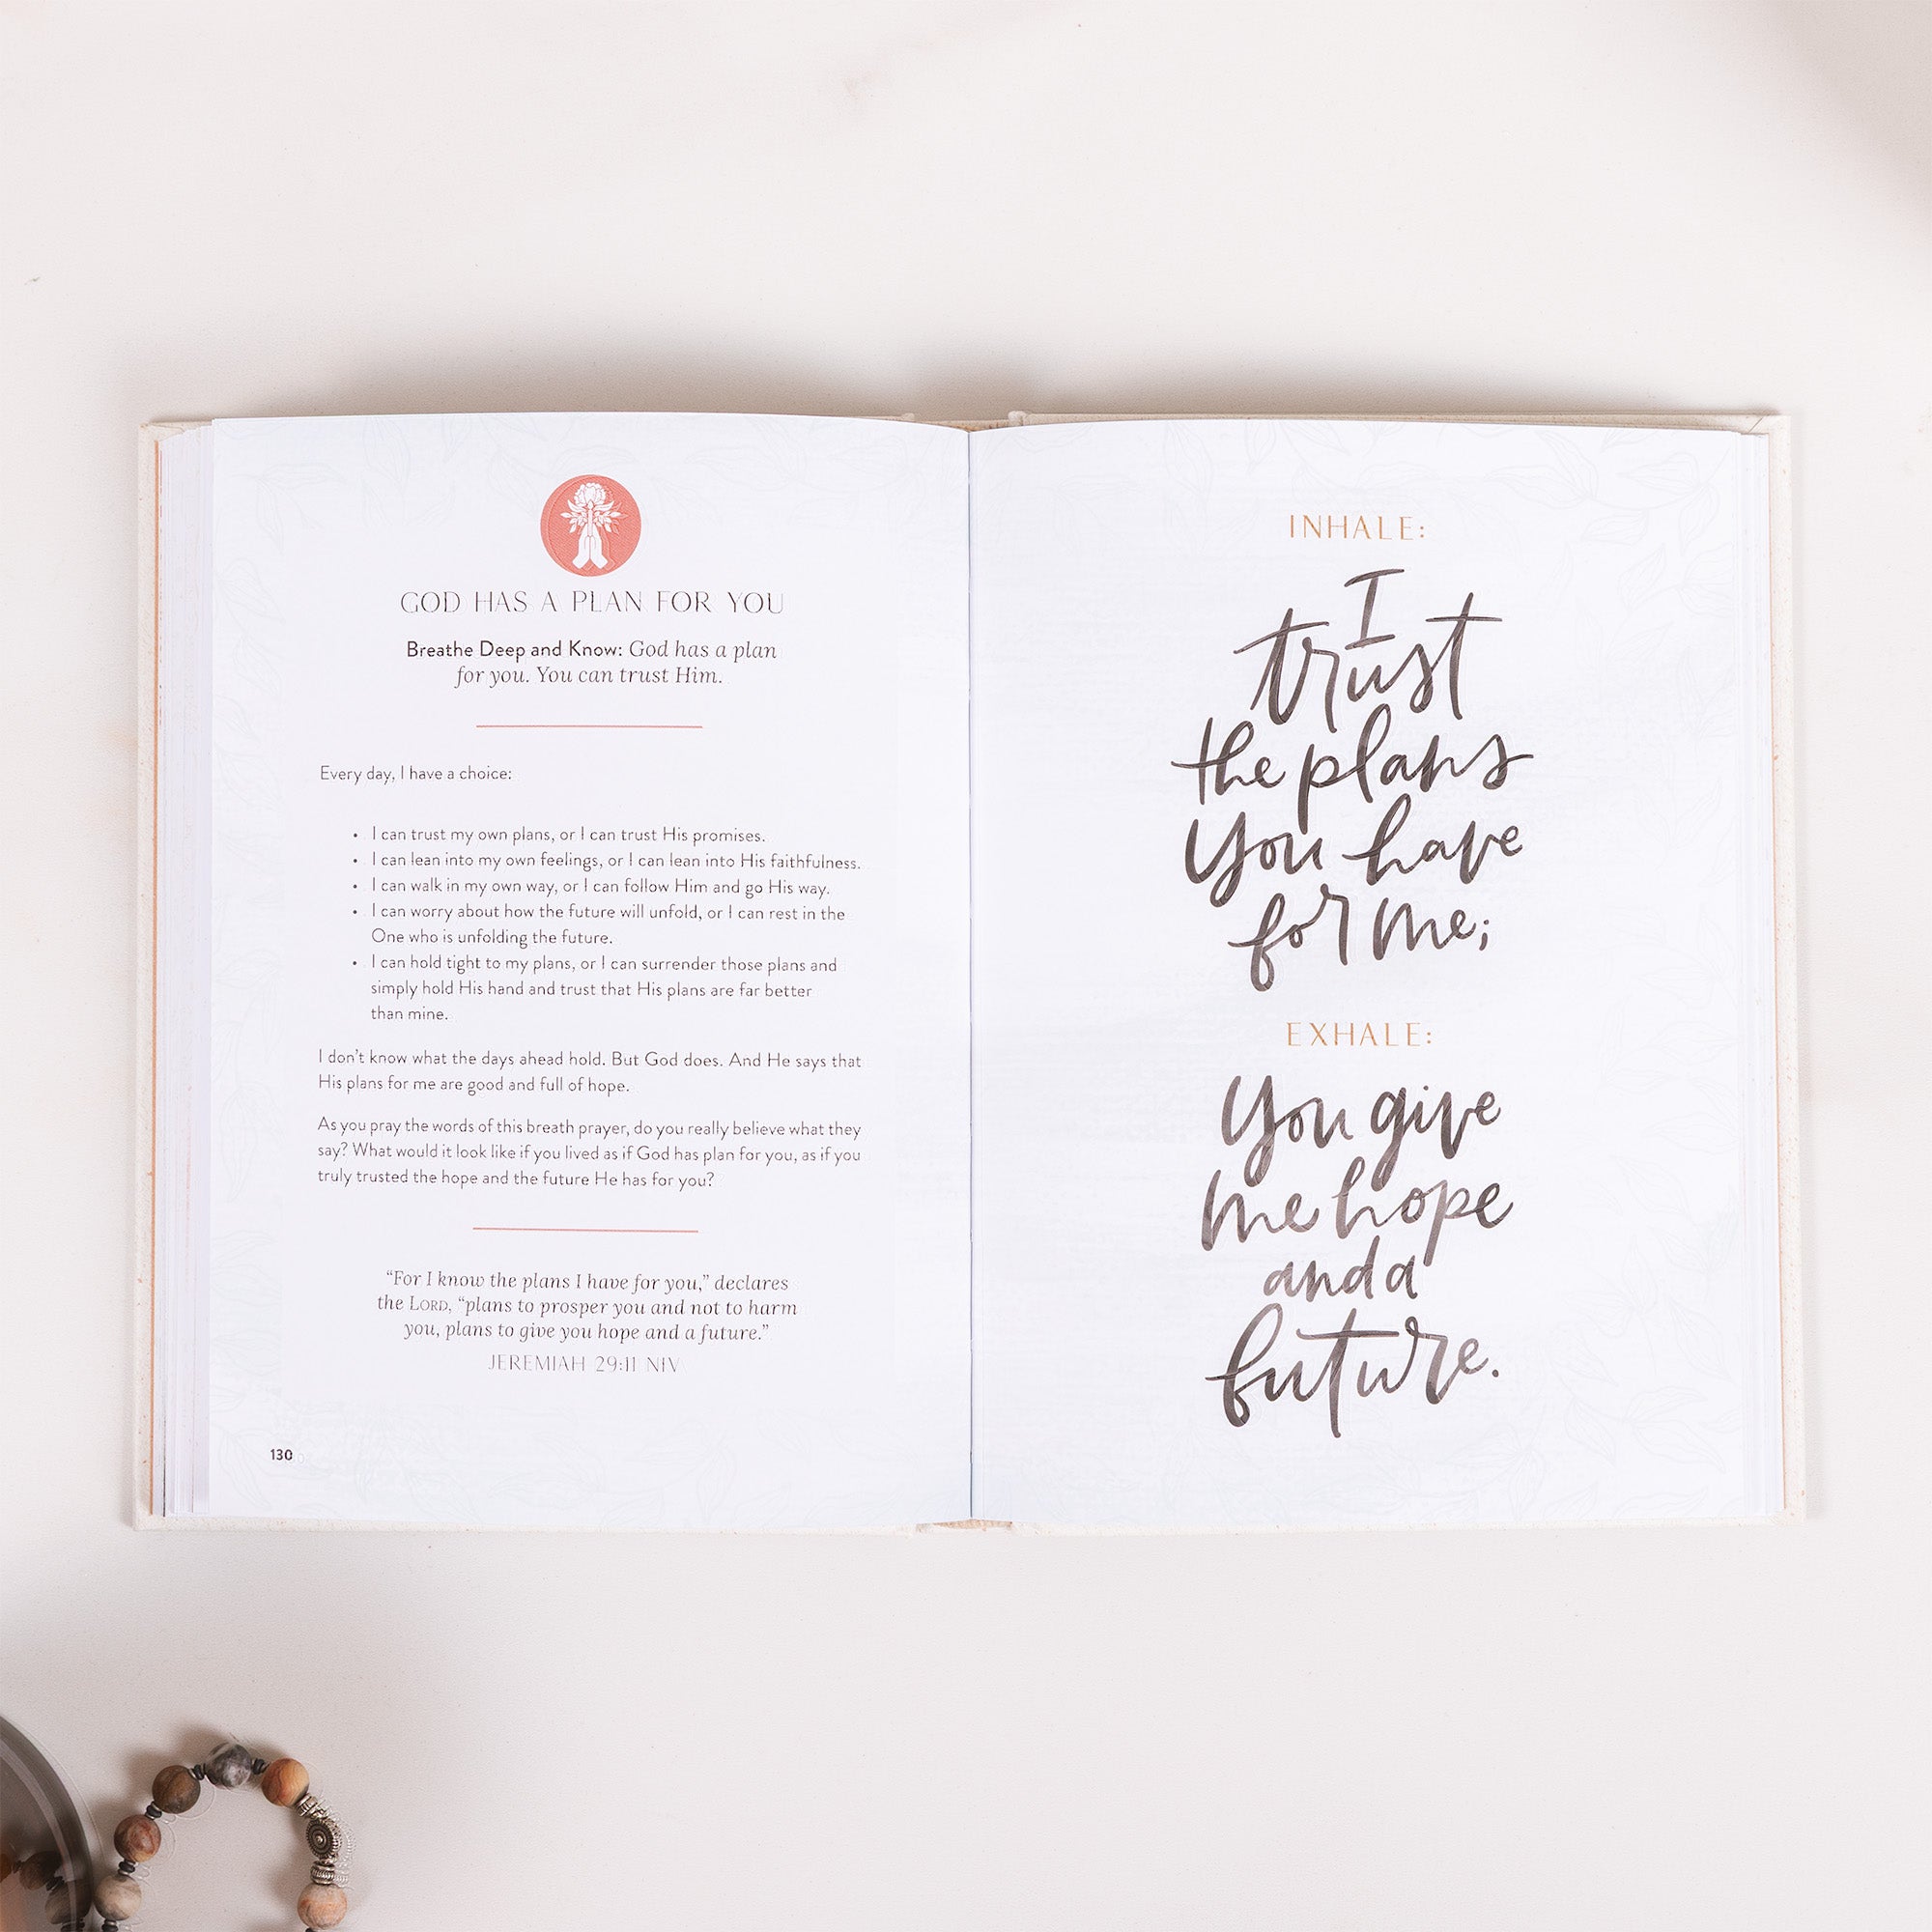 GOD HAS A PLAN FOR YOU
Breathe Deep and Know: God has a plan
for you. You can trust Him.
Every day, I have a choice:
• I can trust my own plans, or I can trust His promises.
• I can lean into my own feelings, or I can lean into His faithfulness.
• I can walk in my own way, or I can follow Him and go His way.
• I can worry about how the future will unfold, or I can rest in the
One who is unfolding the future.
• I can hold tight to my plans, or I can surrender those plans and
simply hold His hand and trust that His plans are far better
than mine.
I don't know what the days ahead hold. But God does. And He says that
His plans for me are good and full of hope.
As you pray the words of this breath prayer, do you really believe what they
say? What would it look like if you lived as if God has plan for you, as if you
truly trusted the hope and the future He has for you?
“For I know the plans I have for you,” declares
the LORD, “plans to prosper you and not to harm
you, plans to give you hope and a future.”
JEREMIAH 29:11 NIV
130
INHALE:
I
trust
the plans
You have
for me;
EXHALE:
You give
me hope
and a
future.